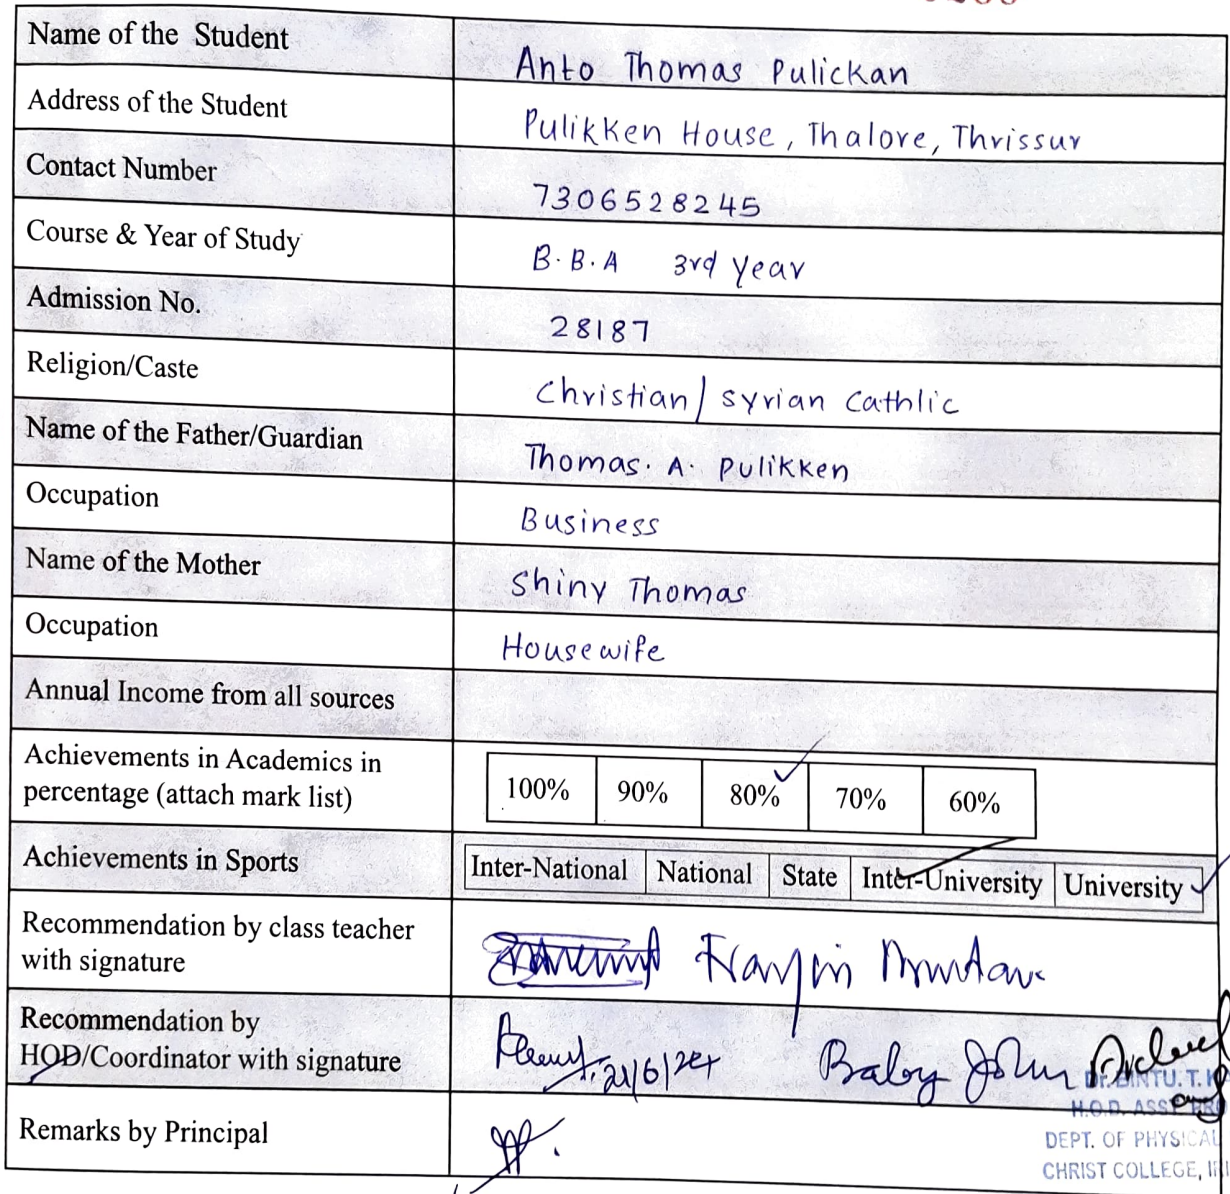 Name of the Student
Anto Thomas Pulickan
Address of the Student
Pulikken House, Thalore, Thrissur
Contact Number
7306528245
Course & Year of Study
B.B.A 3rd Year
Admission No.
28187
Religion/Caste
Christian/ Syrian Cathlic
Name of the Father/Guardian
Thomas. A. Pulikken
Occupation
Business
Name of the Mother
Shiny Thomas
Occupation
Housewife
Annual Income from all sources
Achievements in Academics in
percentage (attach mark list)
100% 90% 80% 70% 60%
Achievements in Sports
Inter-National National State Inter-University University
Recommendation by class teacher
with signature
Recommendation by
HOD/Coordinator with signature
21/6/24 Baby John
Dr. BINTU. T. K
H.O.D. ASST
DEPT. OF PHYSICAL
CHRIST COLLEGE,
Remarks by Principal